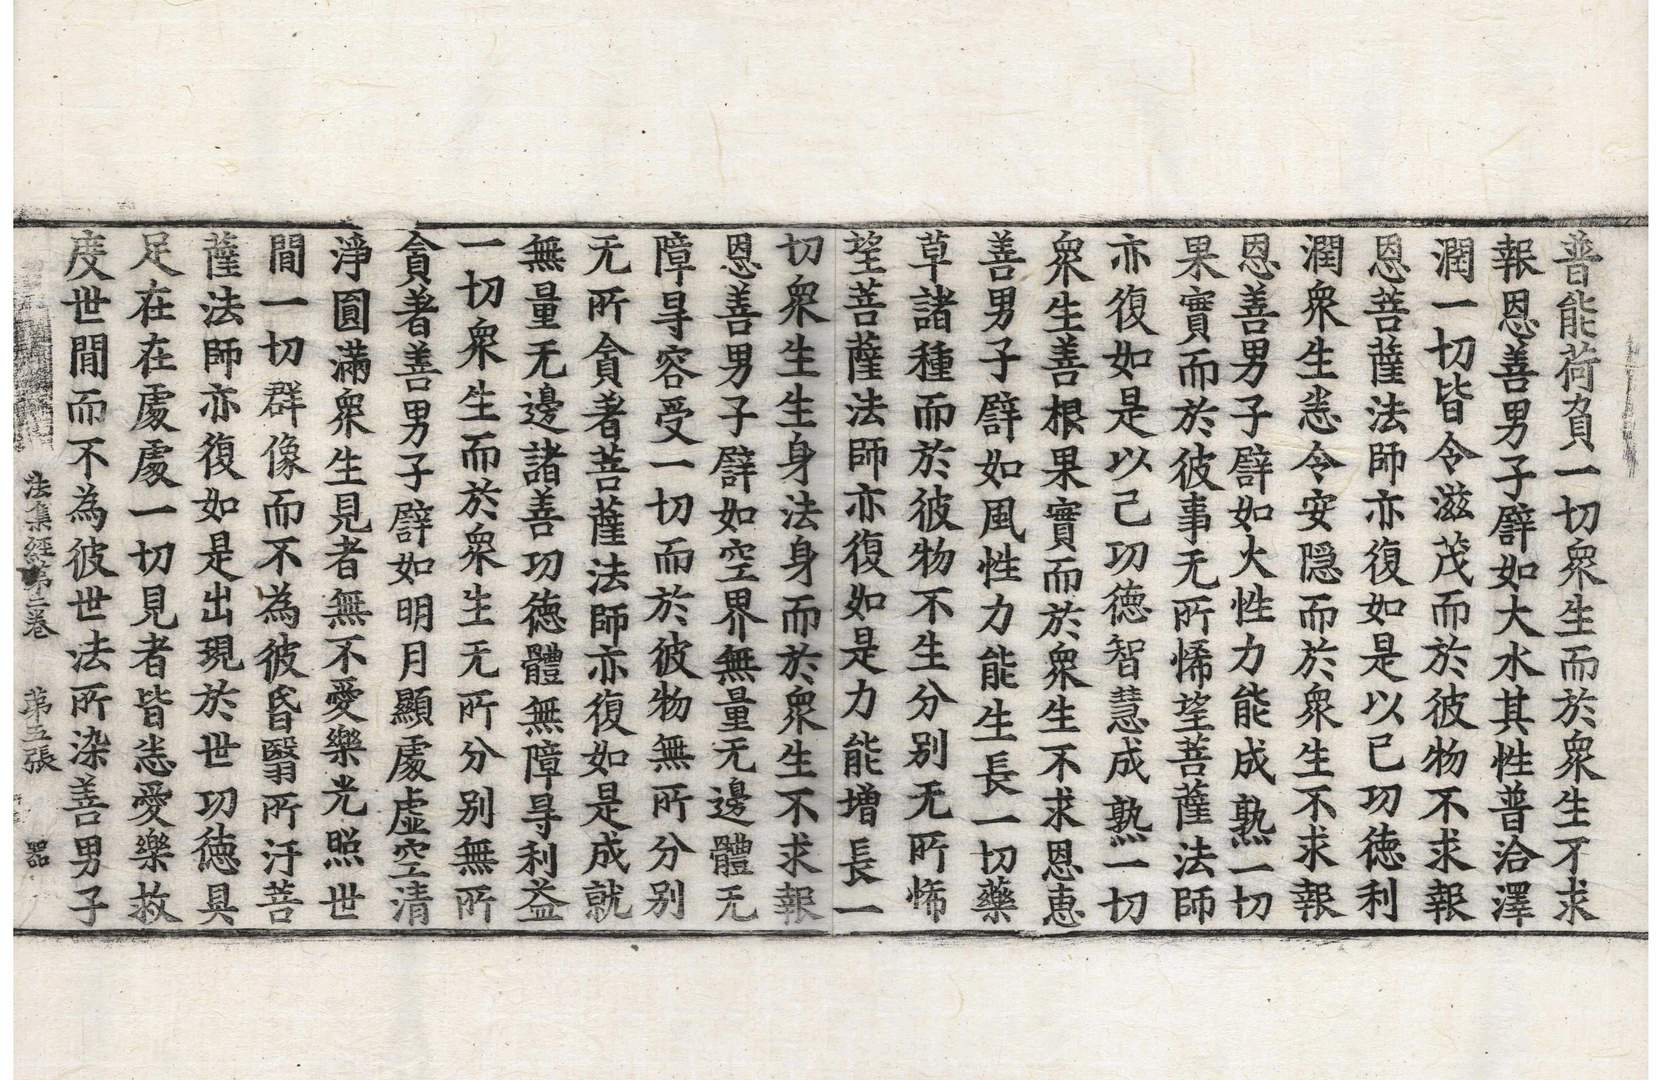 普能荷負一切衆生而於衆生不求
報恩善男子譬如大水其性普洽澤
潤一切皆令滋茂而於彼物不求報
恩菩薩法師亦復如是以己功徳利
潤衆生悉令安隱而於衆生不求報
恩善男子譬如火性力能成熟一切
果實而於彼事无所悕望菩薩法師
亦復如是以己功德智慧成熟一切
衆生善根果實而於衆生不求恩惠
善男子譬如風性力能生長一切藥
草諸種而於彼物不生分別无所悕
望菩薩法師亦復如是力能增長一
切衆生生身法身而於衆生不求報
恩善男子譬如空界無量无邊體无
障㝵容受一切而於彼物無所分別
无所貪著菩薩法師亦復如是成就
無量无邊諸善功徳體無障㝵利益
一切衆生而於衆生无所分別無所
貪著善男子譬如明月顯處虛空清
淨圓滿衆生見者無不愛樂光照世
間一切群像而不為彼昏翳所汙菩
薩法師亦復如是出現於世功徳具
足在在處處一切見者皆悉愛樂救
度世間而不為彼世法所染善男子
法集經第二卷 第五張 器